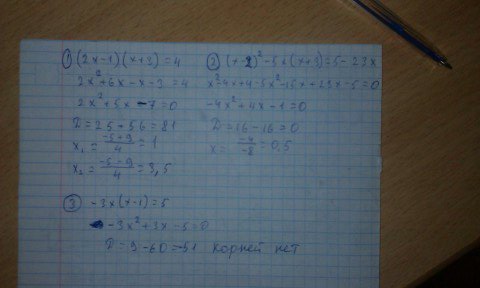 1) (2x-1)(x+3)=4
2x²+6x-x-3=4
2x²+5x-7=0
D=25+56=81
x₁=(-5+9)/4=1
x₂=(-5-9)/4=3,5
2) (x-2)²-5x(x+3)=5-23x
x²-4x+4-5x²-15x+23x-5=0
-4x²+4x-1=0
D=16-16=0
x=-4/-8=0,5
3) -3x(x-1)=5
-3x²+3x-5=0
D=9-60=-51 Корней нет